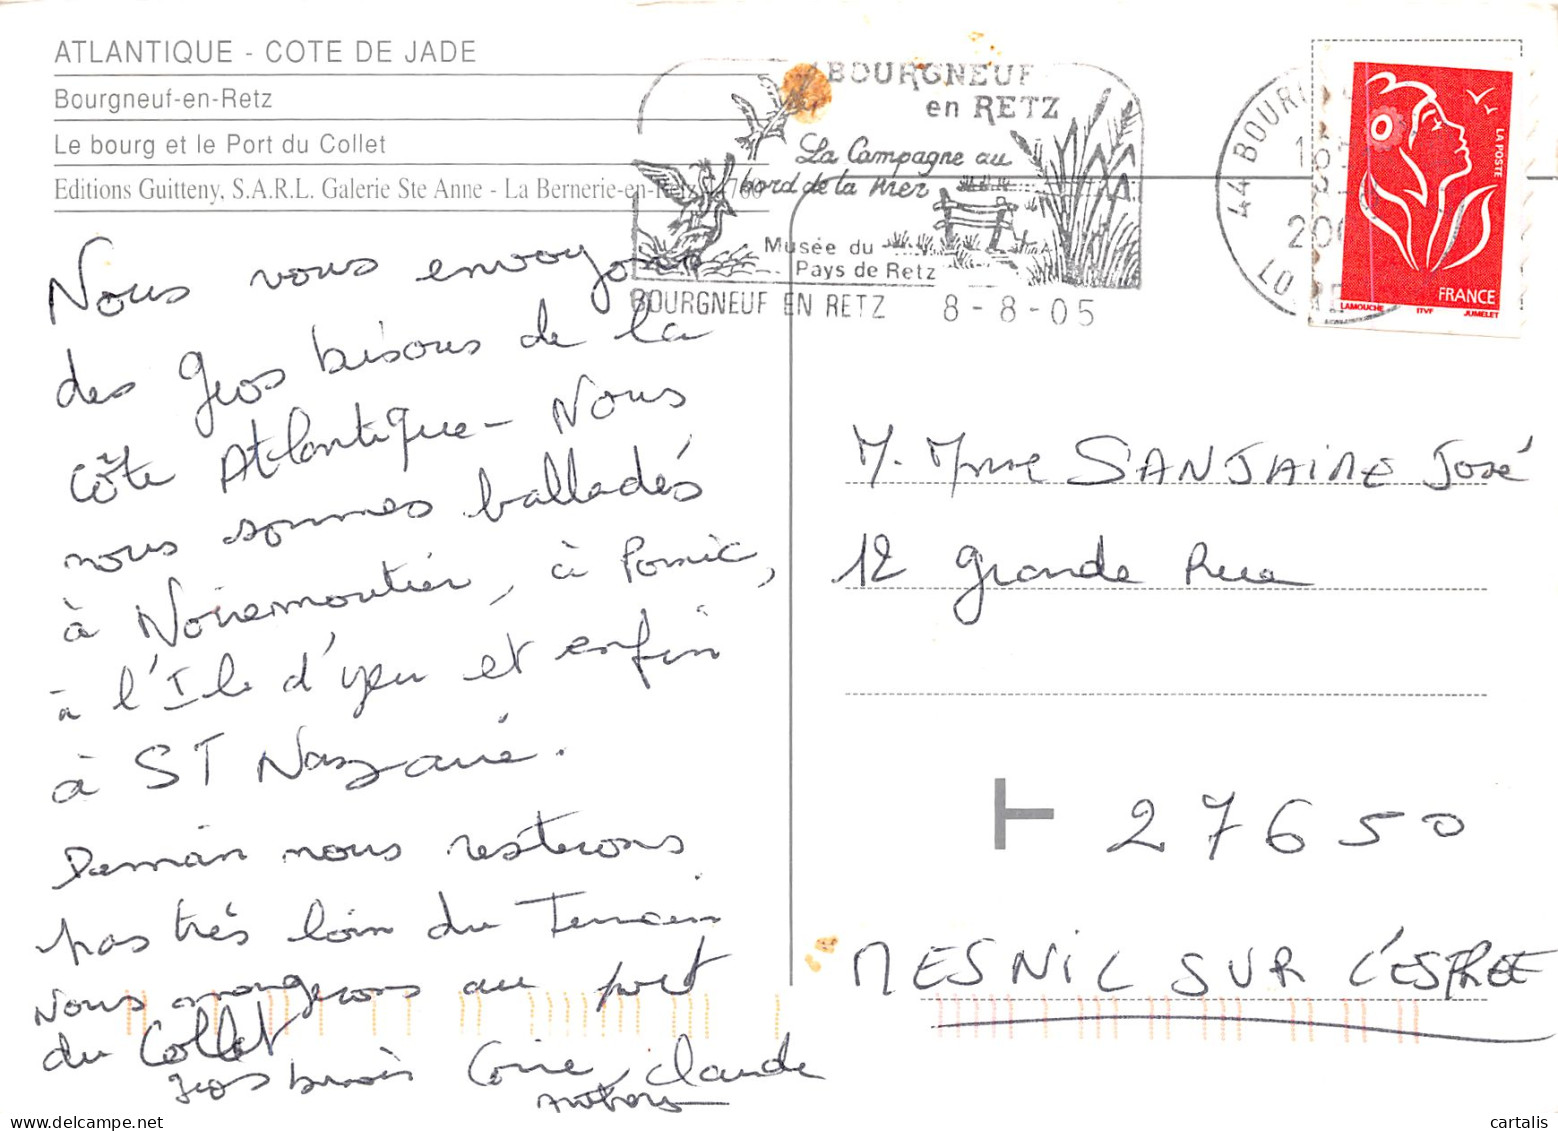 ATLANTIQUE - COTE DE JADE
Bourgneuf-en-Retz
Le bourg et le Port du Collet
Editions Guitteny, S.A.R.L. Galerie Ste Anne - La Bernerie-en-Retz 44760
BOURGNEUF
en RETZ
La Campagne au
bord de la mer
Musée du
Pays de Retz
BOURGNEUF EN RETZ 8-8-05
44 BOURG
LA POSTE
FRANCE
LAMOUCHE ITVF JUMELET
Nous vous envoyons
des gros bisous de la
Côte Atlantique - Nous
nous sommes balladés
à Noiremoutier, à Pornic,
à l'Ile d'yeu et enfin
à ST Nazaire.
Demain nous resterons
pas très loin du Terrain
Nous mangerons au port
du Collet
gros bisous Claude
M. Mme SANJAIME José
12 grande Rue
T 27650
MESNIL SUR L'ESTREE